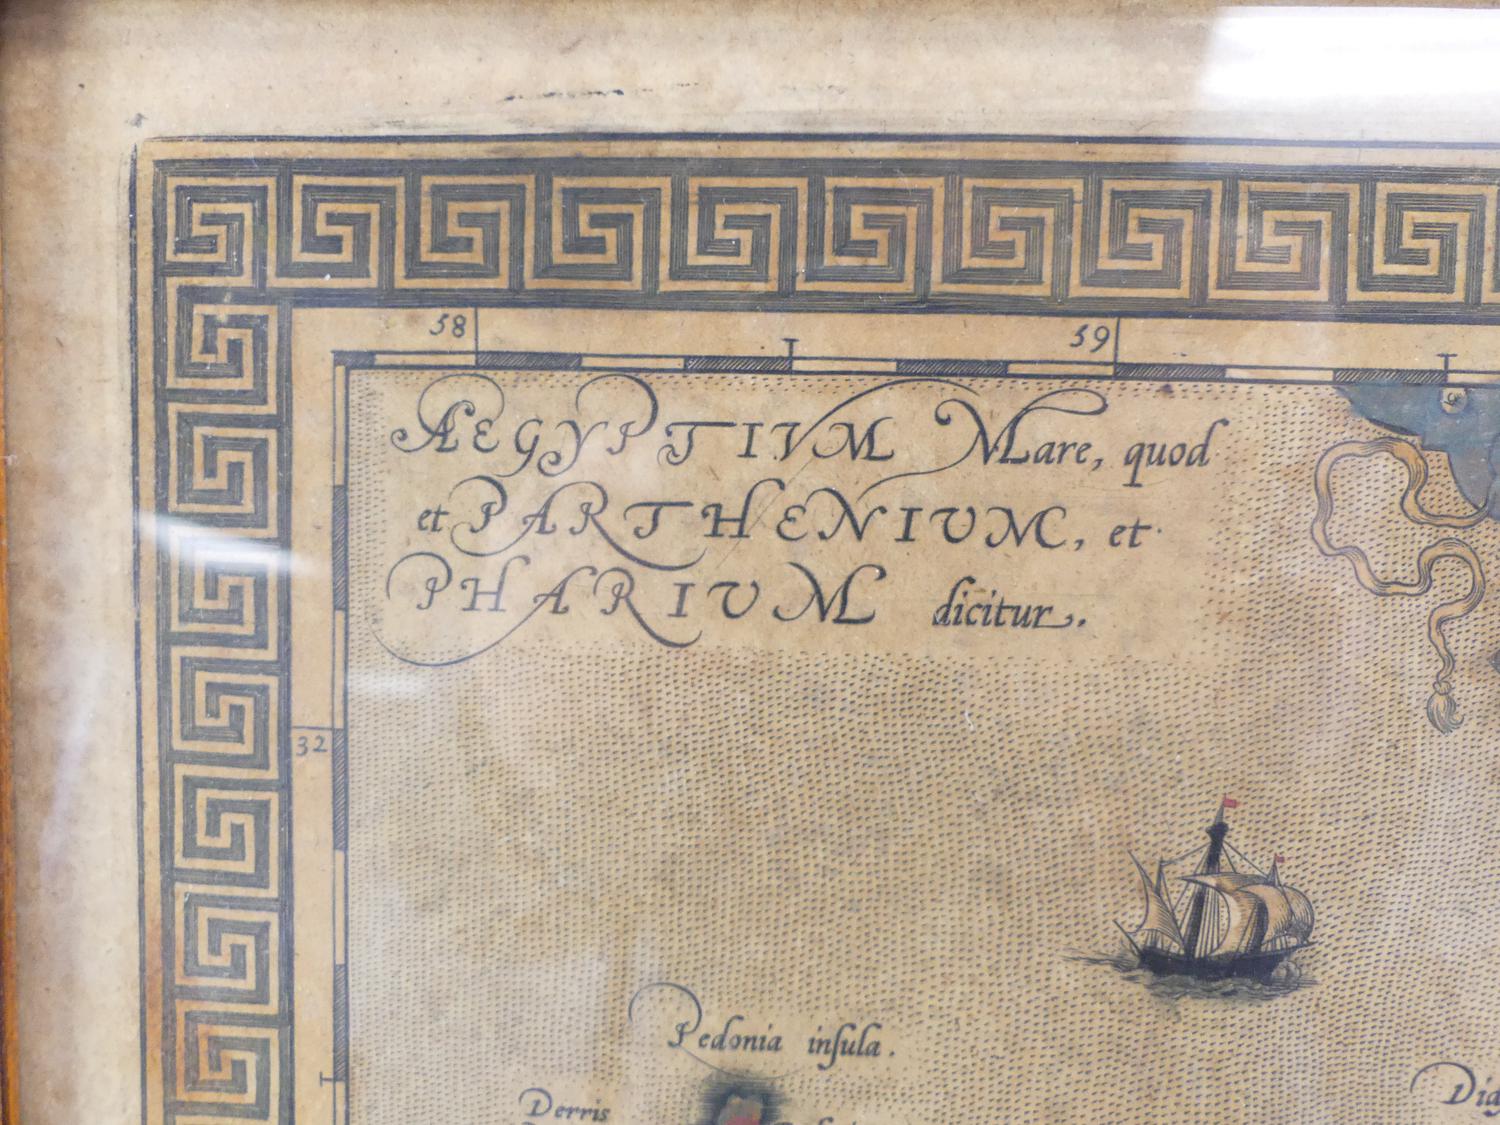 58
59
ÆGYPTIVM Mare, quod
et PARTHENIUM, et
PHARIUM dicitur.
32
Pedonia inſula.
Derris